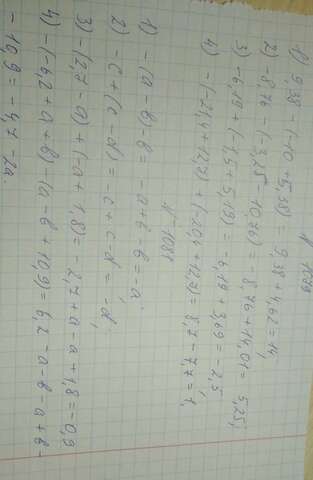 N 1079
1) 9,38 - (-10 + 5,38) = 9,38 + 4,62 = 14;
2) -8,76 - (-3,25 - 10,76) = -8,76 + 14,01 = 5,25;
3) -6,19 + (-1,5 + 5,19) = -6,19 + 3,69 = -2,5;
4) -(-21,4 + 12,7) + (-20,4 + 12,7) = 8,7 - 7,7 = 1,
N 1081
1) -(a - b) - b = -a + b - b = -a;
2) -c + (c - d) = -c + c - d = -d;
3) -(2,7 - a) + (-a + 1,8) = -2,7 + a - a + 1,8 = -0,9
4) -(-6,2 + a + b) - (a - b + 10,9) = 6,2 - a - b - a + b -
- 10,9 = -4,7 - 2a.